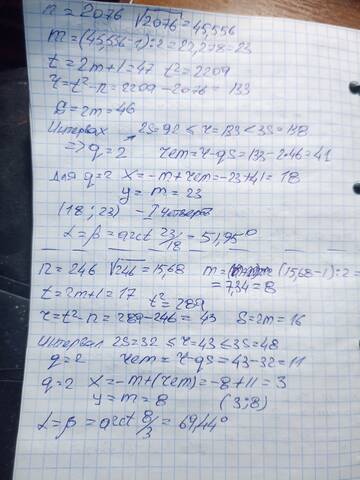 n = 2076 √2076 = 45,556
m = (45,556-1):2 = 22,278 = 23
t = 2m+1 = 47 t² = 2209
r = t²-n = 2209-2076 = 133
S = 2m = 46
Интервал 2S=92 ≤ r=133 < 3S=148
⇒ q = 2 rem = r-qS = 133-2·46 = 41
Для q=2 x = -m+rem = -23+41 = 18
y = m = 23
(18; 23) - I четверть
α = β = arct 23/18 = 51,95°
n = 246 √246 = 15,68 m = (15,68-1):2 =
= 7,34 = 8
t = 2m+1 = 17 t² = 289
r = t²-n = 289-246 = 43 S=2m = 16
Интервал 2S=32 ≤ r=43 < 3S=48
q = 2 rem = r-qS = 43-32 = 11
q=2 x = -m+(rem) = -8+11 = 3
y = m = 8 (3; 8)
α = β = arct 8/3 = 69,44°